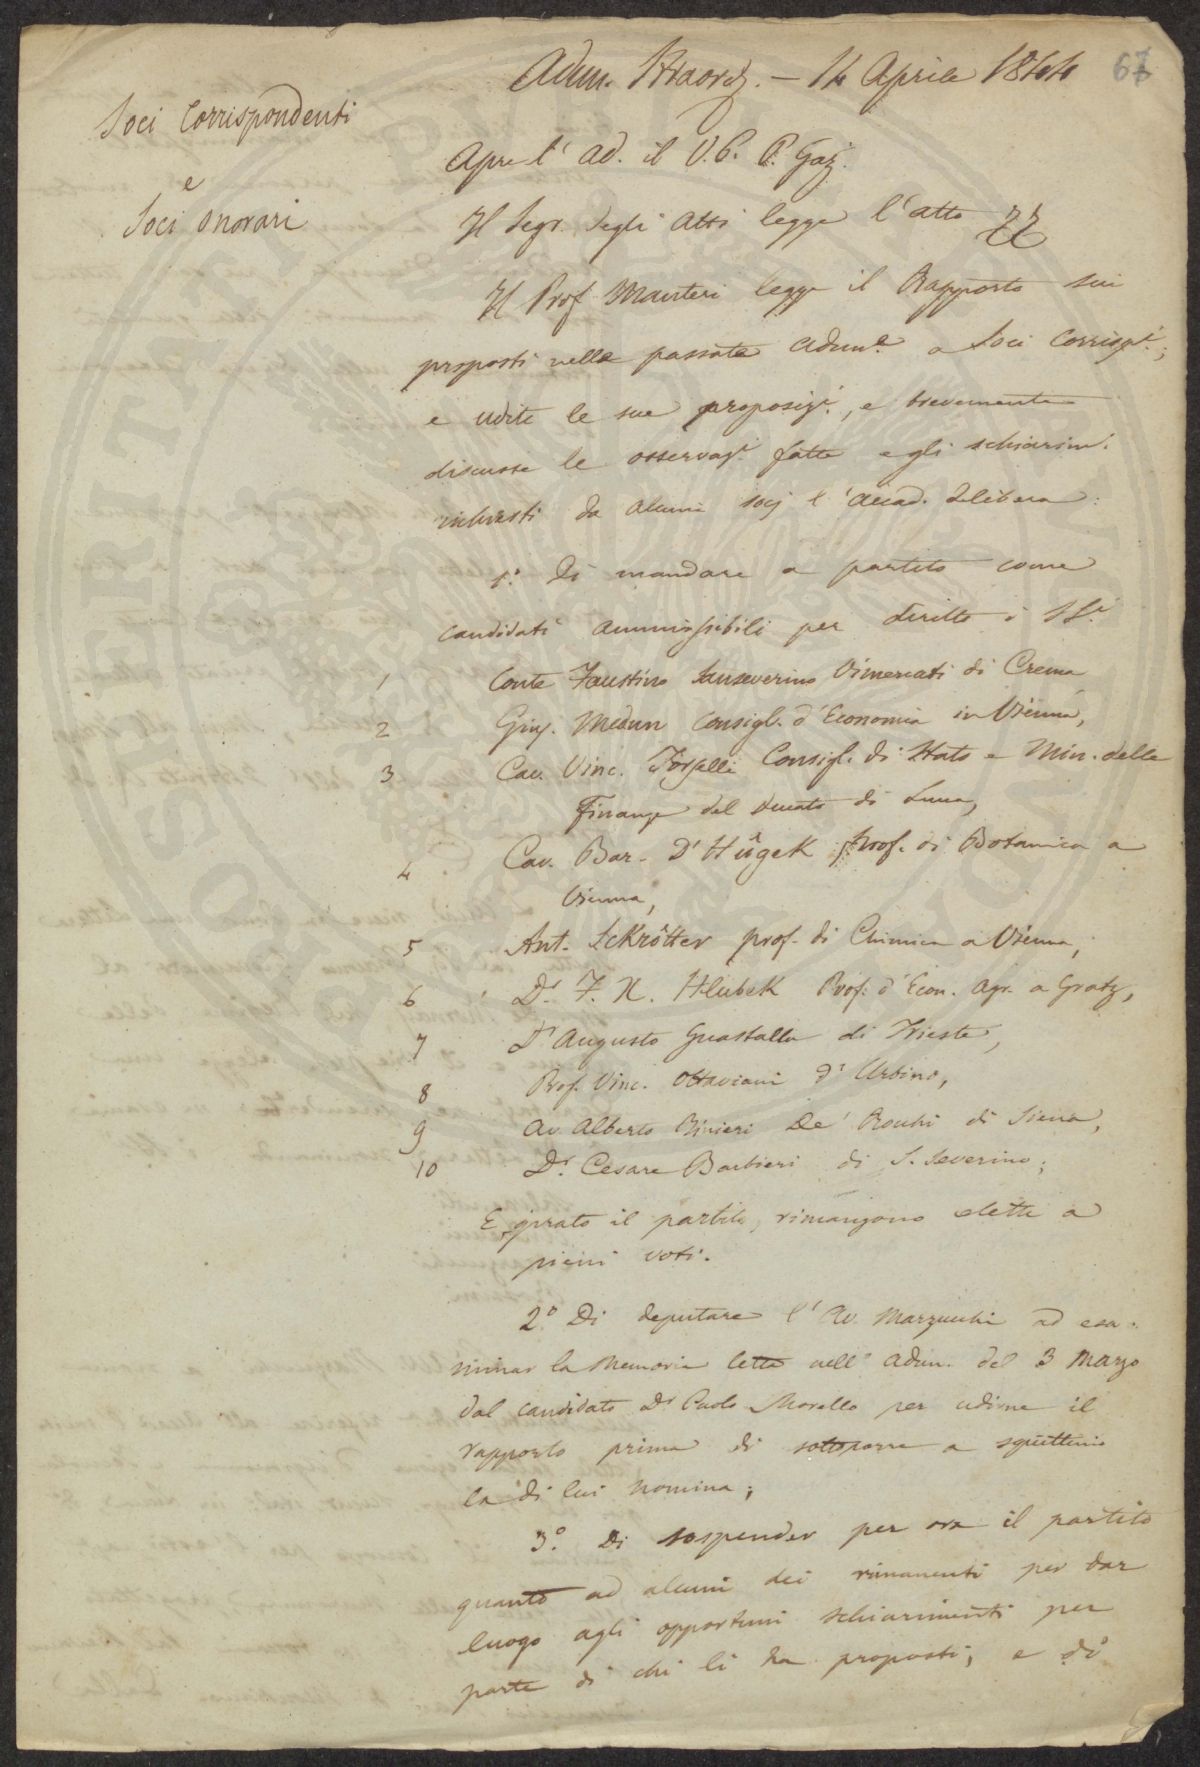 Adun. Straord. – 14 Aprile 1844
67
Soci Corrispondenti
e
Soci onorari
Apre l'ad. il V. P. P. Gaz.
Il Segr. degli Atti legge l'atto
Il Prof. Manteri legge il Rapporto sui
proposti nella passata adun.e a Soci Corrisp.i;
e udite le sue proposiz.i, e brevemente
discusse le osservaz.i fatte e gli schiarim.i
richiesti da alcuni socj l'Accad. delibera:
1.o Di mandare a partito come
candidati ammissibili per diritto i SS.i
1 Conte Faustino Sanseverino Vimercati di Crema
2 Gius. Medun Consigl. d'Economia in Vienna,
3 Cav. Vinc. Torselli Consigl. di Stato e Min. delle
Finanze del Ducato di Lucca,
4 Cav. Bar. D'Hügek Prof. di Botanica a
Vienna,
5 Ant. Sckrötter prof. di Chimica a Vienna,
6 D.r F. X. Hlubek Prof. d'Econ. Agr. a Gratz,
7 D.r Augusto Guastalla di Trieste,
8 Prof. Vinc. Ottaviani d'Urbino,
9 Av. Alberto Rinieri De' Rocchi di Siena,
10 D.r Cesare Barbieri di S. Severino;
E girato il partito, rimangono eletti a
pieni voti.
2.o Di deputare l'Av. Marzucchi ad esa-
minar la Memoria letta nell'adun. del 3 Marzo
dal candidato D.r Paolo Morello per udirne il
rapporto prima di sottoporre a squittinio
la di lui nomina;
3.o Di sospender per ora il partito
quanto ad alcuni dei rimanenti per dar
luogo agli opportuni schiarimenti per
parte di chi li ha proposti; e di